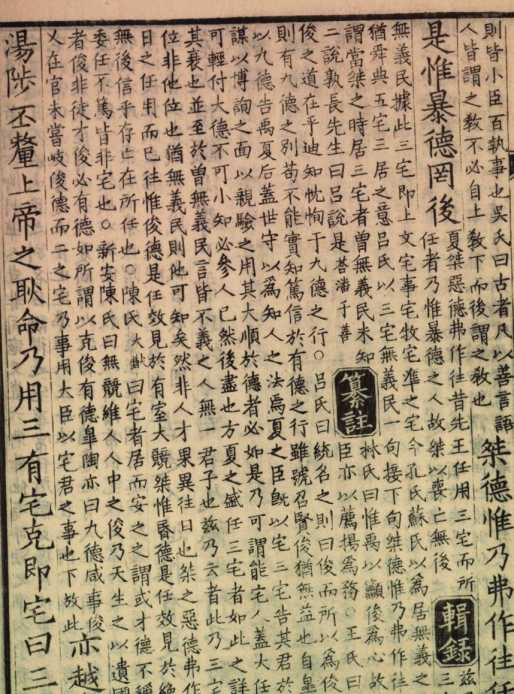 則皆小臣百執事也吳氏曰古者凡以善言語
人皆謂之教不必自上教下而後謂之教也
桀德惟乃弗作往任
是惟暴德罔後
夏桀惡德弗作往昔先王任用三宅而所
任者乃惟暴德之人故桀以喪亡無後
輯録
茲
三
無義民據此三宅即上文宅事宅牧宅準之宅今孔氏蘇氏以為居無義之
猶舜典五宅三居之意呂氏以三宅無義民一句接下句桀德惟乃弗作往
謂當桀之時居三宅者曾無義民未知
二說孰長先生曰呂說是荅潘子善
纂註
林氏曰惟禹以顯俊為心故
臣亦以薦揚為務○王氏曰
俊之道在乎迪知忱恂于九德之行○呂氏曰統名之則曰俊而所以為俊
則有九德之別苟不能實知篤信於有德之行雖號召賢俊猶無益也自皐
以九德告禹夏后蓋世守以為知人之法焉夏之臣既以宅三宅告其君於
謀以博詢之面以親驗之用其大順於德者必如是乃可謂能宅人蓋大任
可輕付大德不可小知必參人已然後盡也方夏之盛任三宅者如此之詳
其衰也並至於曾無義民言皆不義之人無一君子也茲乃云者此乃三宅
位非他位也猶無義民則他可知矣然非人才果異往日也桀之惡德弗作
日之任用而已往惟俊德是任效見於有室大競桀惟昏德是任效見於絶
無後信乎存亡在所任也○陳氏大猷曰宅者居而安之之謂或才德不稱
委任不篤皆非宅也○新安陳氏曰無競維人人中之俊乃天生之以遺國
者俊非徒才俊必有德如所謂以克俊有德皐陶亦曰九德咸事俊
乂在官未嘗岐俊德而二之宅乃事用大臣以宅君之事也下放此
亦越
湯陟丕釐上帝之耿命乃用三有宅克即宅曰三